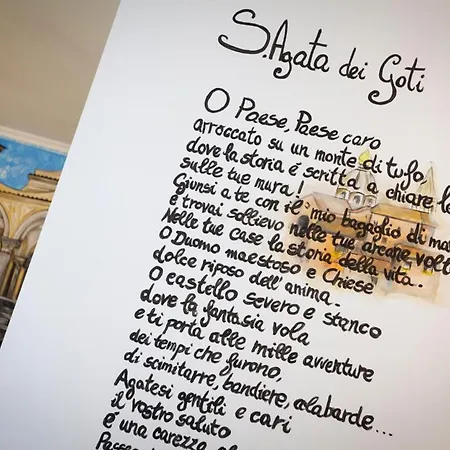 S. Agata dei Goti
O Paese, Paese caro
arroccato su un monte di tufo,
dove la storia é scritta a chiare
sulle tue mura!
Giunsi a te con il mio bagaglio di
e trovai sollievo nelle tue arcane
Nelle tue case la storia della vita.
O Duomo maestoso e Chiese
dolce riposo dell'anima.
O castello severo e stanco
dove la fantasia vola
e ti porta alle mille avventure
dei tempi che furono,
di scimitarre, bandiere, alabarde...
Agatesi gentili e cari
il vostro saluto
é una carezza